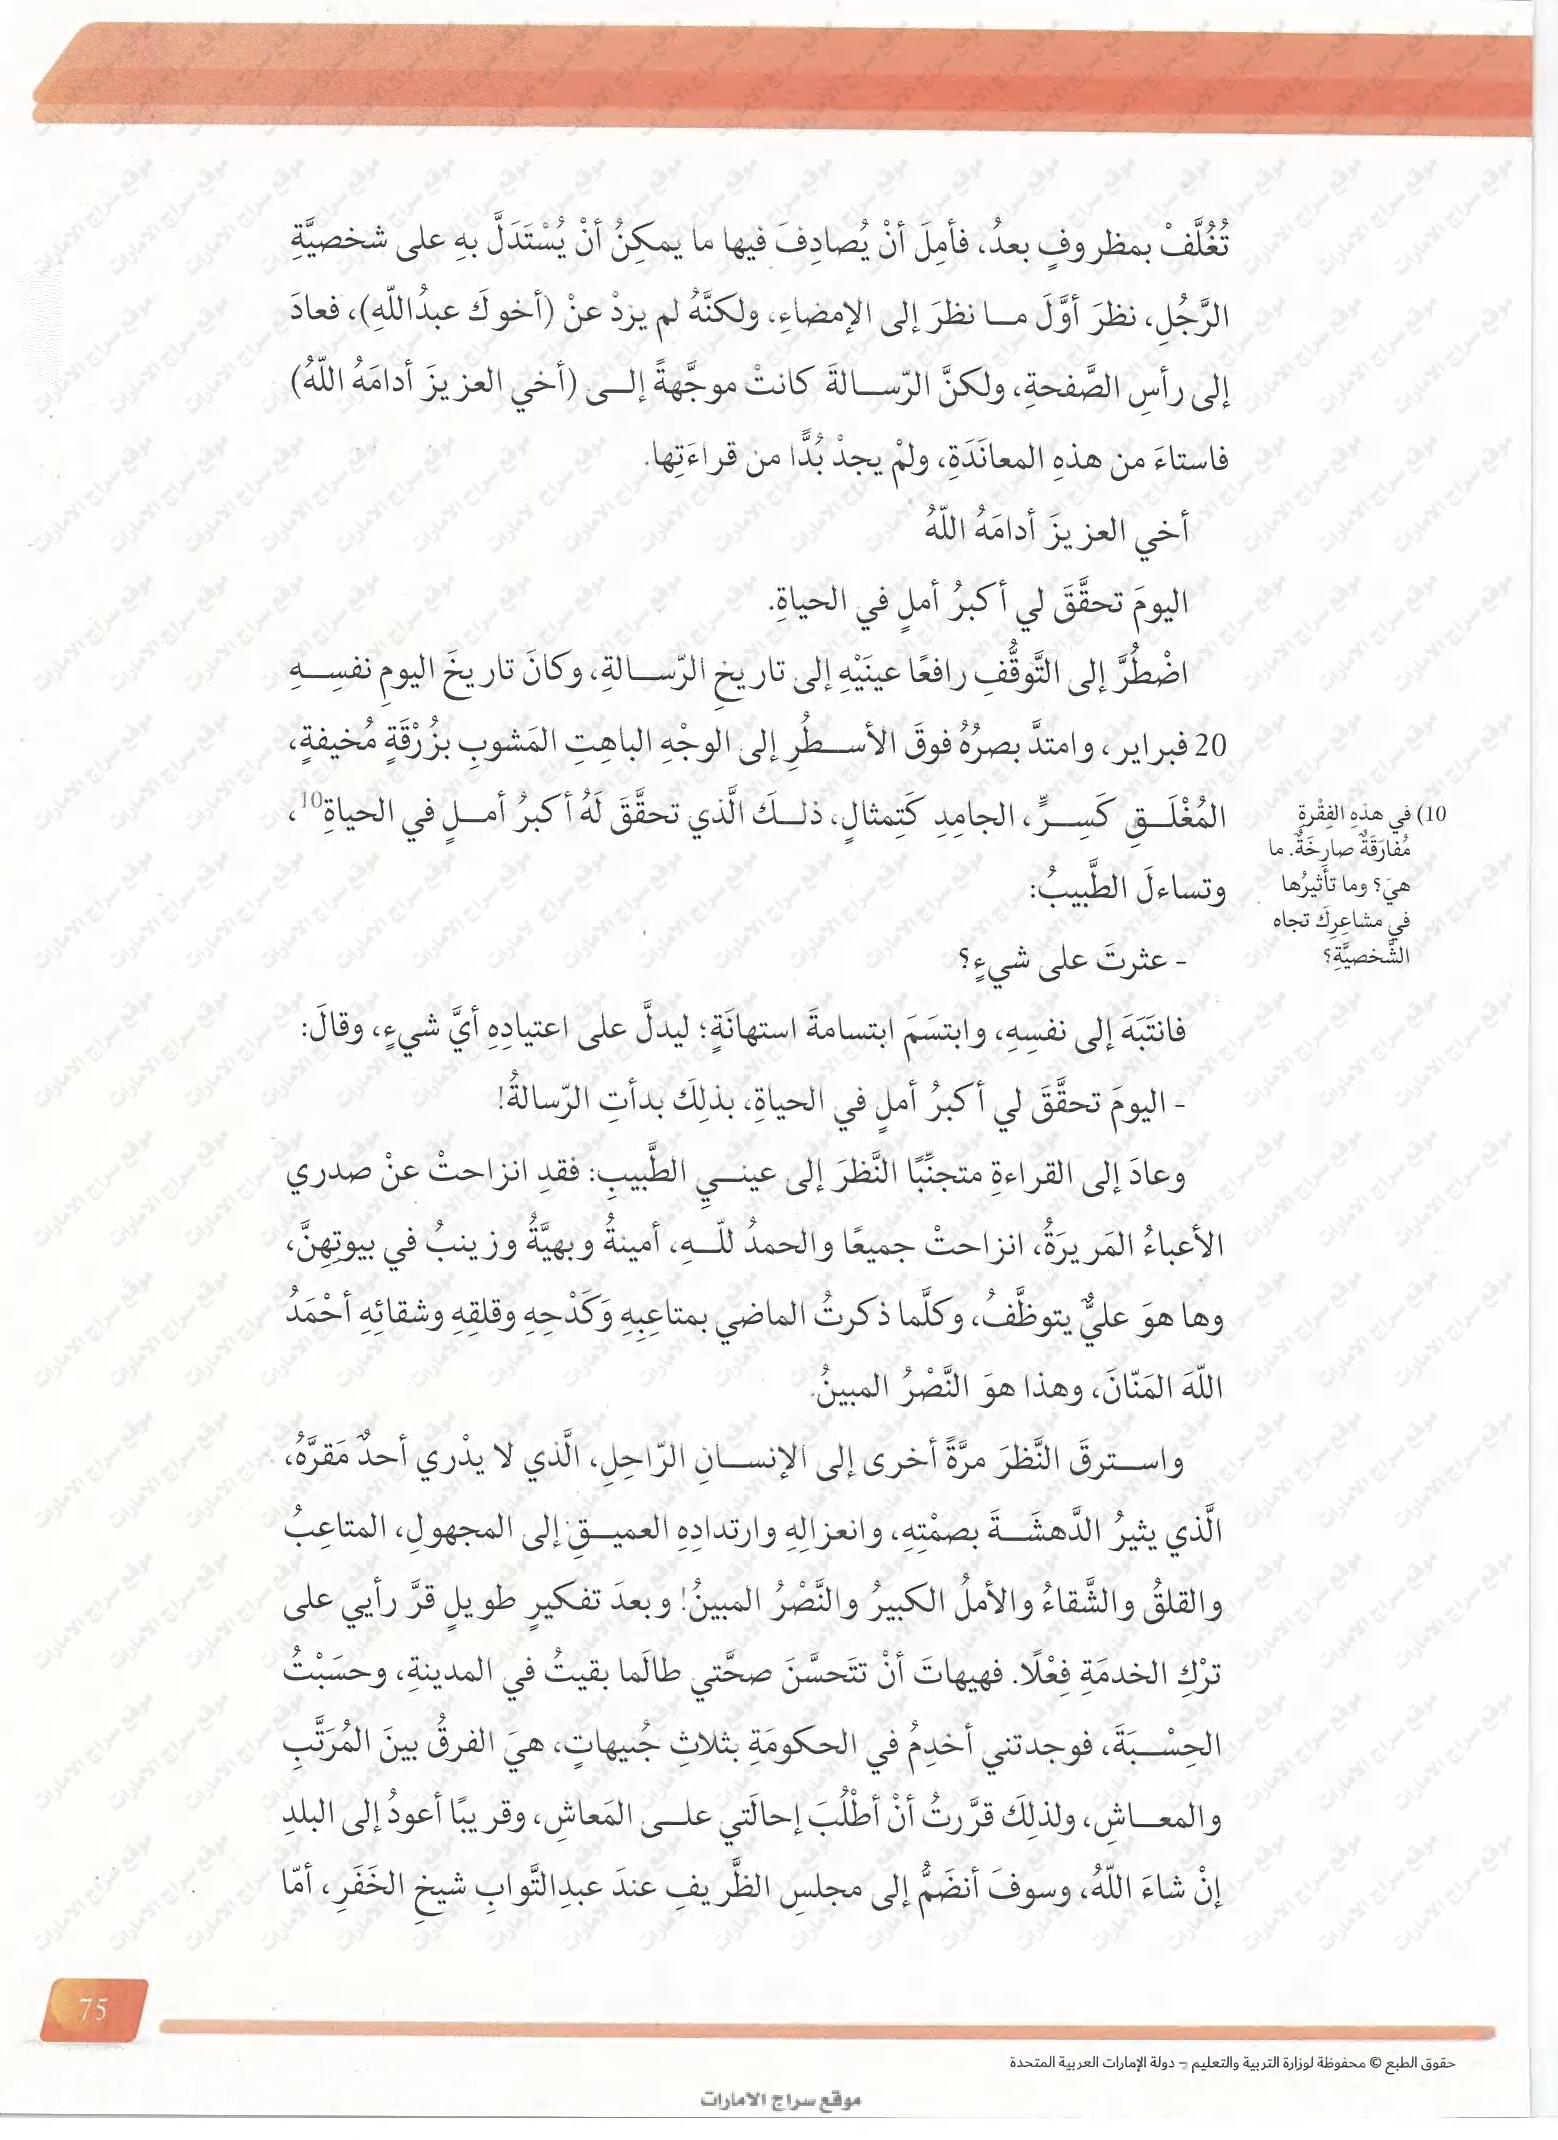 تُغُلَّفْ بمظروفٍ بعدُ، فأمِلَ أنْ يُصادِفَ فيها ما يمكِنُ أنْ يُسْتَدَلَّ بهِ على شخصيَّةِ
الرَّجُلِ، نظرَ أوَّلَ مــا نظرَ إلى الإمضاءِ، ولكنَّهُ لم يزدْ عنْ (أخوكَ عبدُاللّهِ)، فعادَ
إلى رأسِ الصَّفحةِ، ولكنَّ الرّســالةَ كانتْ موجَّهةً إلــى (أخي العزيزَ أدامَهُ اللّهُ)
فاستاءَ من هذهِ المعانَدَةِ، ولمْ يجدْ بُدًّا من قراءَتِها.
أخي العزيزَ أدامَهُ اللّهُ
اليومَ تحقَّقَ لي أكبرُ أملٍ في الحياةِ.
اضْطُرَّ إلى التَّوقُّفِ رافعًا عينَيْهِ إلى تاريخِ الرّســالةِ، وكانَ تاريخَ اليومِ نفسِــهِ
20 فبراير، وامتدَّ بصرُهُ فوقَ الأســطُرِ إلى الوجْهِ الباهِتِ المَشوبِ بزُرْقَةٍ مُخيفةٍ،
المُغْلَــقِ كَسِــرٍّ، الجامِدِ كَتِمثالٍ، ذلــكَ الَّذي تحقَّقَ لَهُ أكبرُ أمــلٍ في الحياةِ10،
وتساءلَ الطَّبيبُ:
- عثرتَ على شيءٍ؟
فانتَبَهَ إلى نفسِهِ، وابتسَمَ ابتسامةَ استهانَةٍ؛ ليدلَّ على اعتيادِهِ أيَّ شيءٍ، وقالَ:
- اليومَ تحقَّقَ لي أكبرُ أملٍ في الحياةِ، بذلِكَ بدأتِ الرّسالةُ!
وعادَ إلى القراءةِ متجنِّبًا النَّظرَ إلى عينــيِ الطَّبيبِ: فقدِ انزاحتْ عنْ صدري
الأعباءُ المَريرَةُ، انزاحتْ جميعًا والحمدُ للّــهِ، أمينةُ وبهيَّةُ وزينبُ في بيوتِهِنَّ،
وها هوَ عليٌّ يتوظَّفُ، وكلَّما ذكرتُ الماضي بمتاعِبِهِ وَكَدْحِهِ وقلقِهِ وشقائِهِ أحْمَدُ
اللّهَ المَنّانَ، وهذا هوَ النَّصْرُ المبينُ.
واســترقَ النَّظرَ مرَّةً أخرى إلى الإنســانِ الرّاحِلِ، الَّذي لا يدْري أحدٌ مَقرَّهُ،
الَّذي يثيرُ الدَّهشَــةَ بصمْتِهِ، وانعزالِهِ وارتدادِهِ العميــقِ إلى المجهولِ، المتاعِبُ
والقلقُ والشَّقاءُ والأملُ الكبيرُ والنَّصْرُ المبينُ! وبعدَ تفكيرٍ طويلٍ قرَّ رأيي على
ترْكِ الخدمَةِ فِعْلًا. فهيهاتَ أنْ تتَحسَّنَ صحَّتي طالَما بقيتُ في المدينةِ، وحسَبْتُ
الحِسْــبَةَ، فوجدتني أخدِمُ في الحكومَةِ بثلاثِ جُنيهاتٍ، هيَ الفرقُ بينَ المُرَتَّبِ
والمعــاشِ، ولذلِكَ قرَّرتُ أنْ أطْلُبَ إحالَتي علــى المَعاشِ، وقريبًا أعودُ إلى البلدِ
إنْ شاءَ اللّهُ، وسوفَ أنضَمُّ إلى مجلسِ الظَّريفِ عندَ عبدِالتَّوابِ شيخِ الخَفَرِ، أمّا
10) في هذهِ الفِقْرةِ
مُفارَقَةٌ صارِخَةٌ. ما
هيَ؟ وما تأثيرُها
في مشاعِرِكَ تجاه
الشَّخصيَّةِ؟
75
حقوق الطبع © محفوظة لوزارة التربية والتعليم – دولة الإمارات العربية المتحدة
موقع سراج الامارات